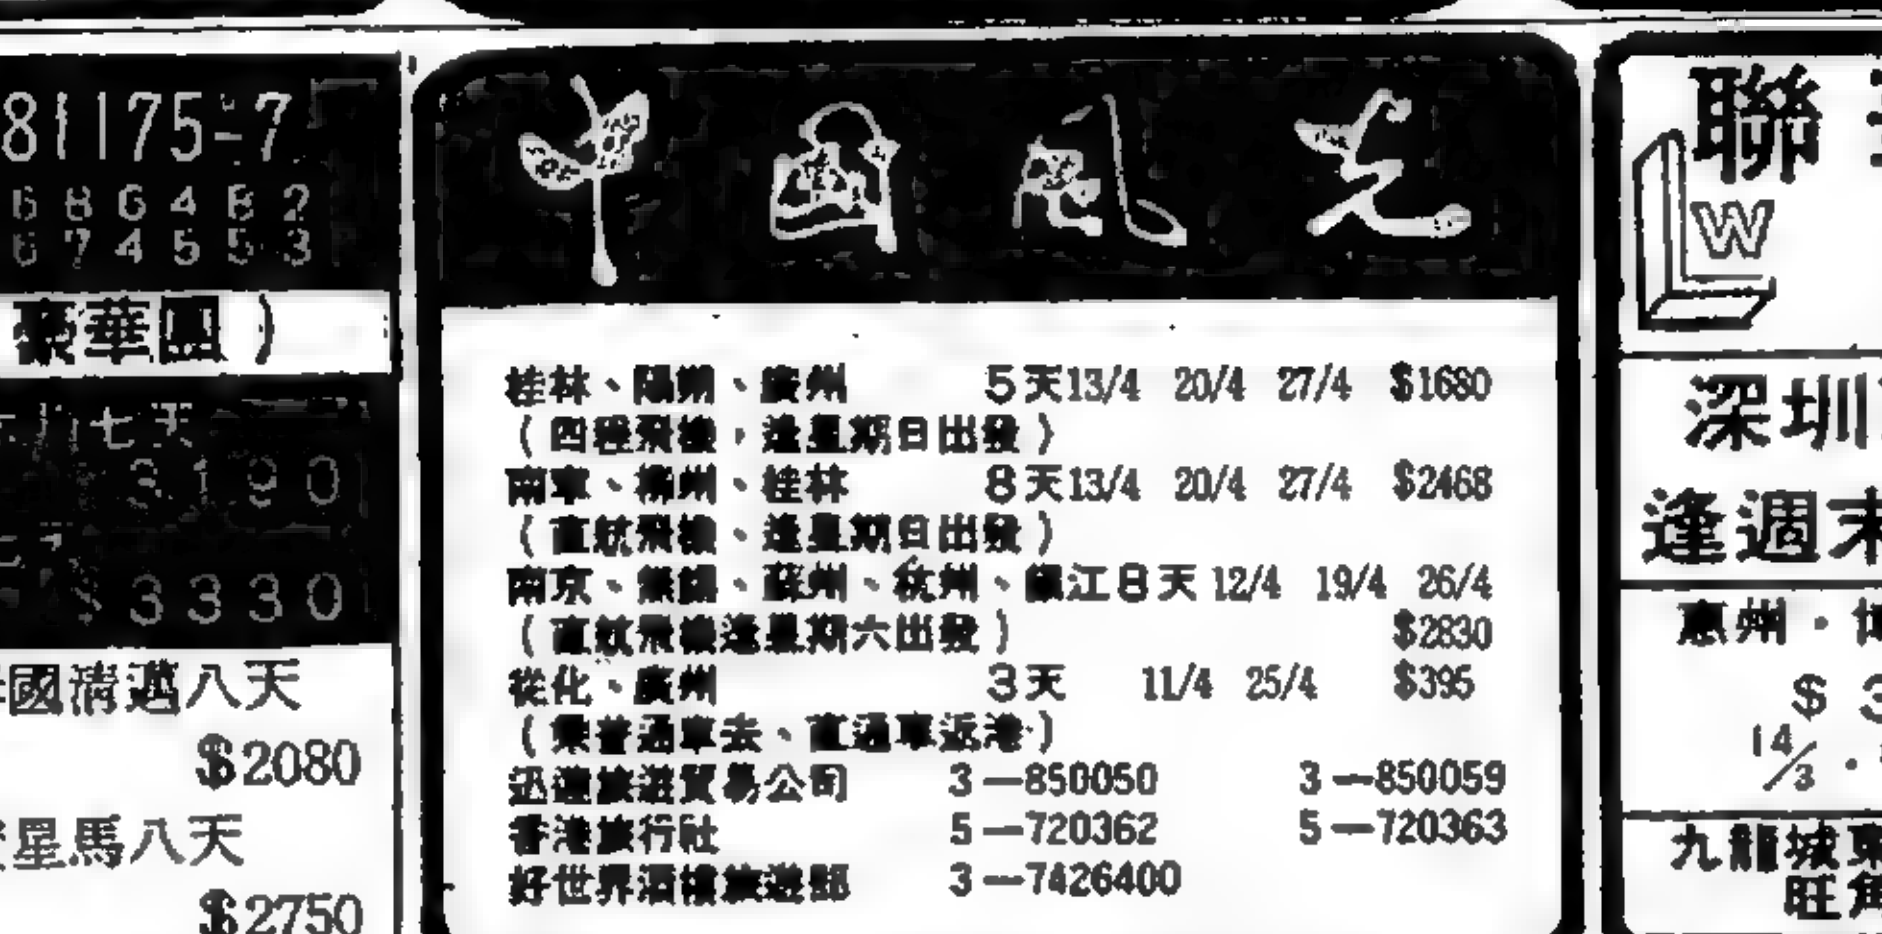 81175-7
6 8 6 4 8 2
6 7 4 5 5 3
豪華團）
七天
3190
$3330
國清邁八天
$2080
星馬八天
$2750
中國風光
桂林、陽朔、廣州 5天13/4 20/4 27/4 $1680
（四程飛機，逢星期日出發）
南寧、柳州、桂林 8天13/4 20/4 27/4 $2468
（直航飛機、逢星期日出發）
南京、無錫、蘇州、杭州、鎮江8天 12/4 19/4 26/4
（直航飛機逢星期六出發） $2830
從化、廣州 3天 11/4 25/4 $395
（乘普通車去、直通車返港）
迅達旅遊貿易公司 3—850050 3—850059
香港旅行社 5—720362 5—720363
好世界酒樓旅遊部 3—7426400
聯
W
深圳
逢週末
惠州・
$ 3
14/3・
九龍城
旺角